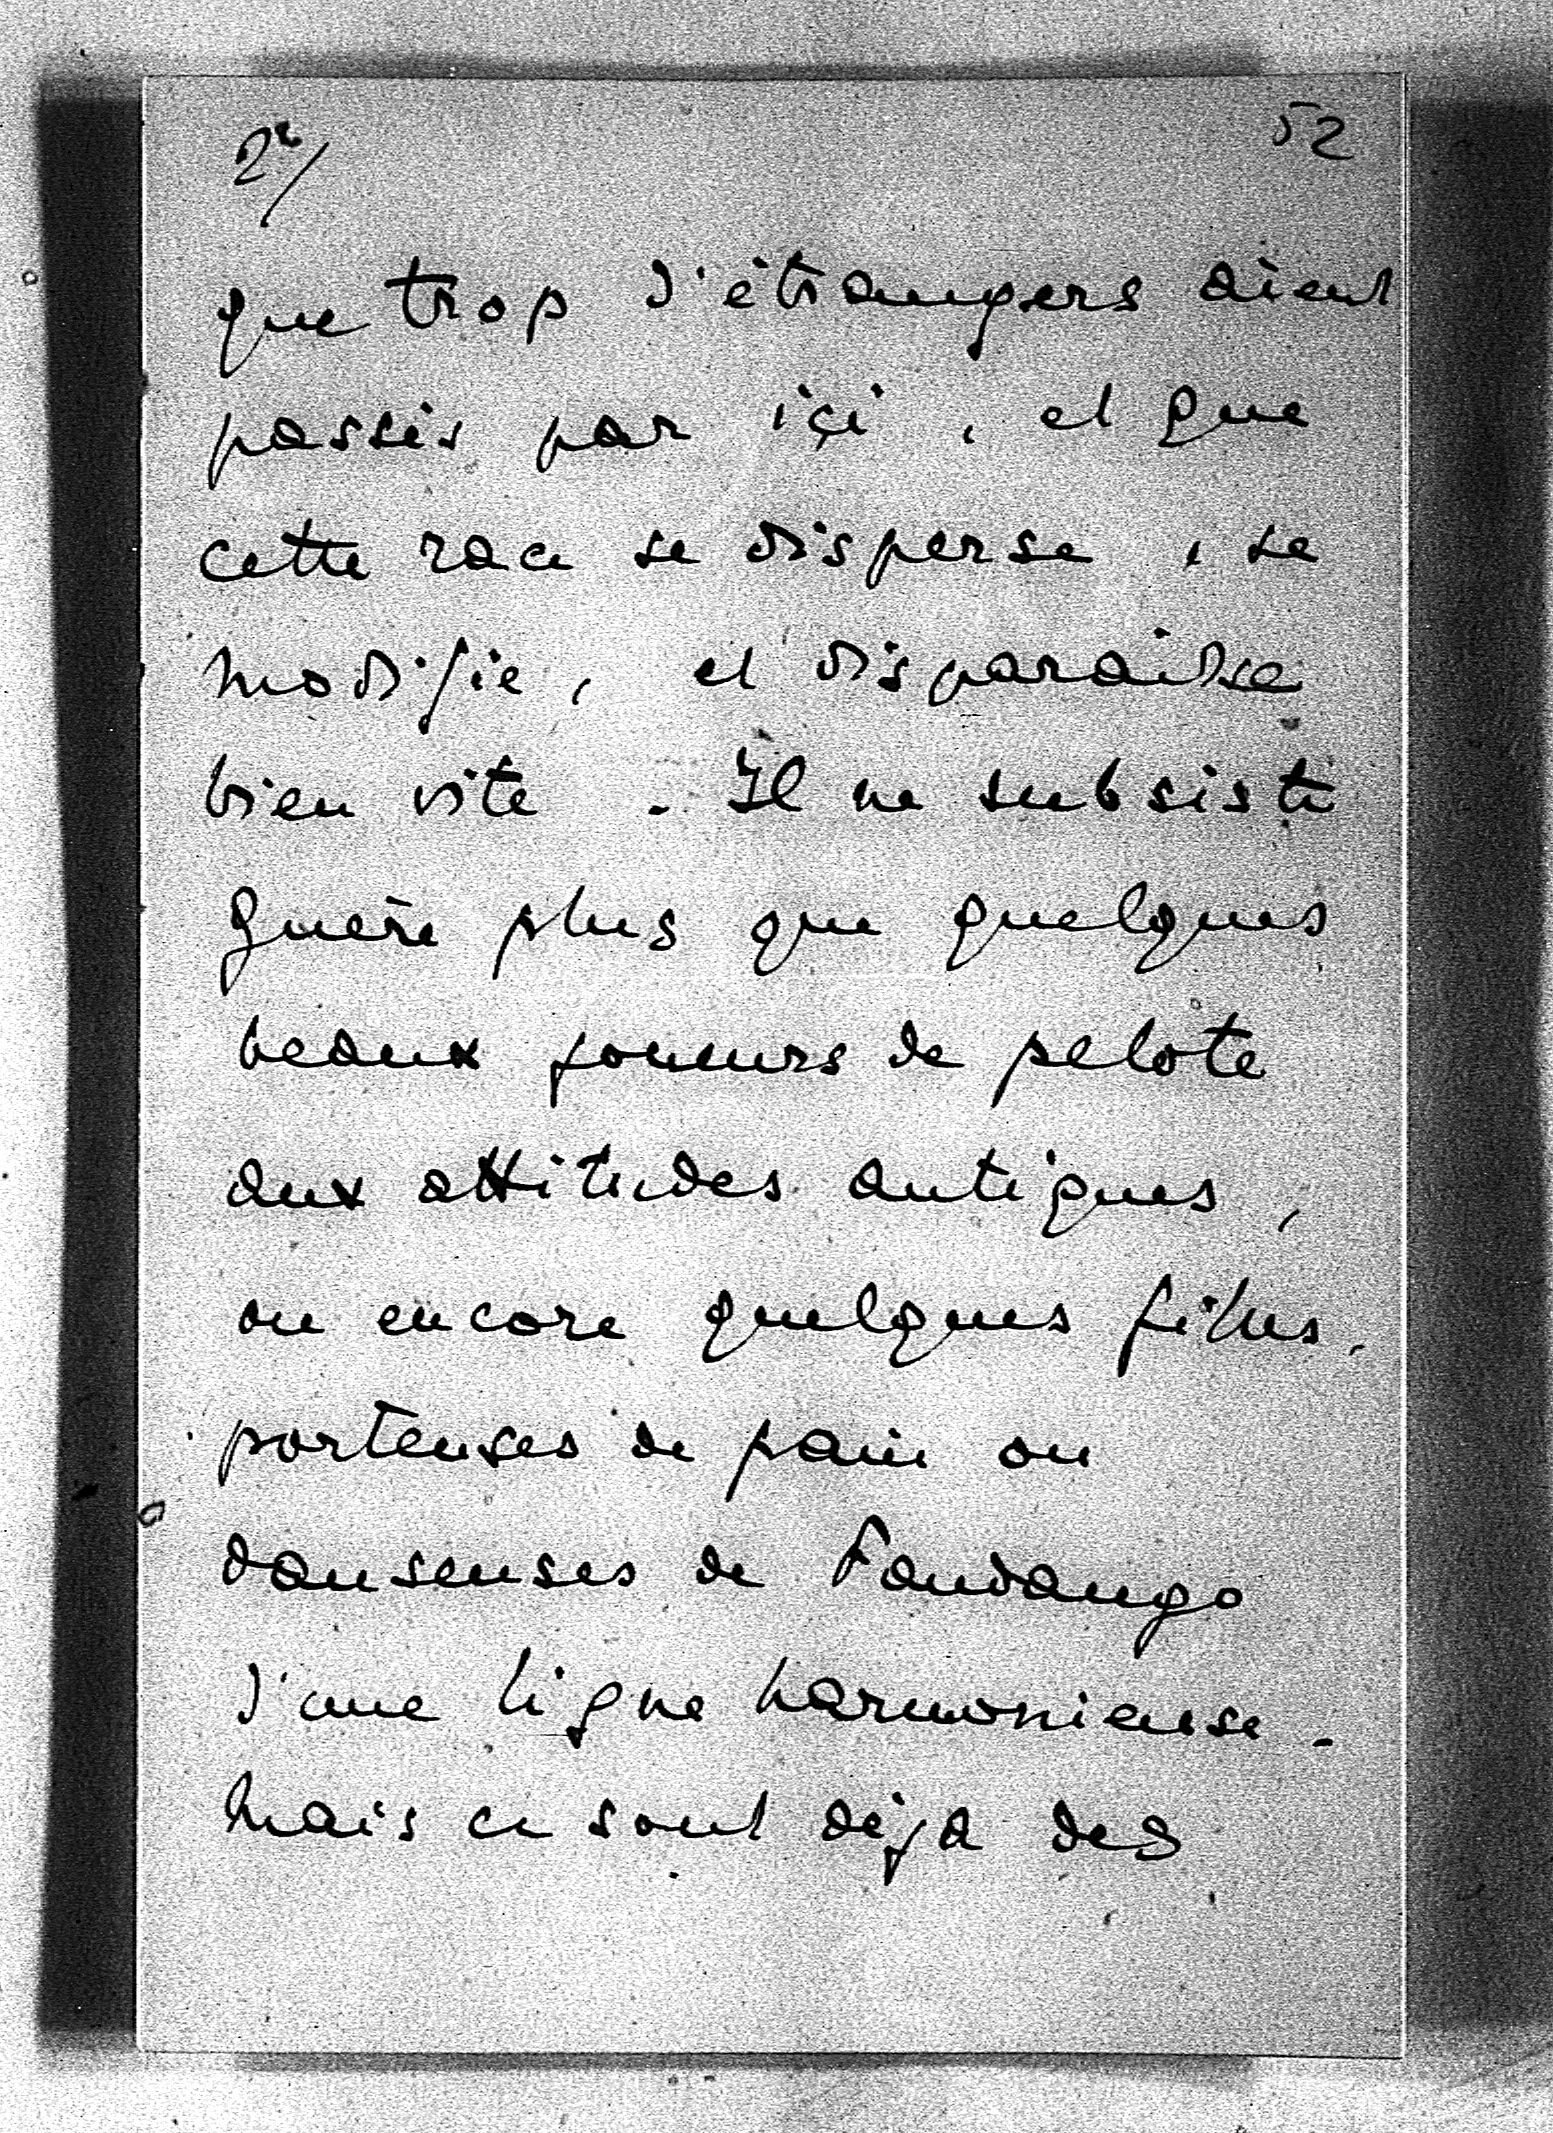 2e/
52
que trop d'étrangers aient
passés par içi, et que
cette race se disperse, se
modifie, et disparaisse
bien vite. Il ne subsiste
guère plus que quelques
beaux joueurs de pelote
aux attitudes antiques,
ou encore quelques filles,
porteuses de pain ou
danseuses de Fandango
d'une ligne harmonieuse.
Mais ce sont déjà des